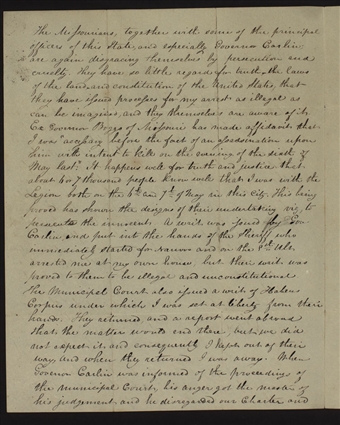 The Missourians, together with some of the principal
officers of this State, and especially Governor Carlin
are again disgracing themselves by persecution and
cruelty. They have so little regard for truth, the laws
of the land, and constitution of the United States, that
they have issued processes for my arrest as illegal as
can be imagined, and they themselves are aware of it.
Ex Governor Boggs of Missouri has made affidavit that
I was accessary before the fact of an assassination upon
him with intent to kill on the evening of the sixth of
May last. It happens well for truth and justice that
about 6 or 7 thousand people know well that I was with the
Legion both on the 6th and 7th of May in this City. This being
proved has shown the designs of their undertaking viz. to
persecute the innocent. A writ was issued by Gov
Carlin and put into the hands of the Sheriff who
immediately started for Nauvoo and on the 8th Ult.
arrested me at my own house. but their writ was
proved to them to be illegal and unconstitutional
The Municipal Court also issued a writ of Habeas
Corpus under which I was set at liberty from their
hands. They returned and a report went abroad
that the matter would end there but we did
not expect it and consequently I kept out of their
way, and when they returned I was away. When
Governor Carlin was informed of the proceedings of
the municipal Court, his anger got the master of
his judgement, and he disregarded our Charter and